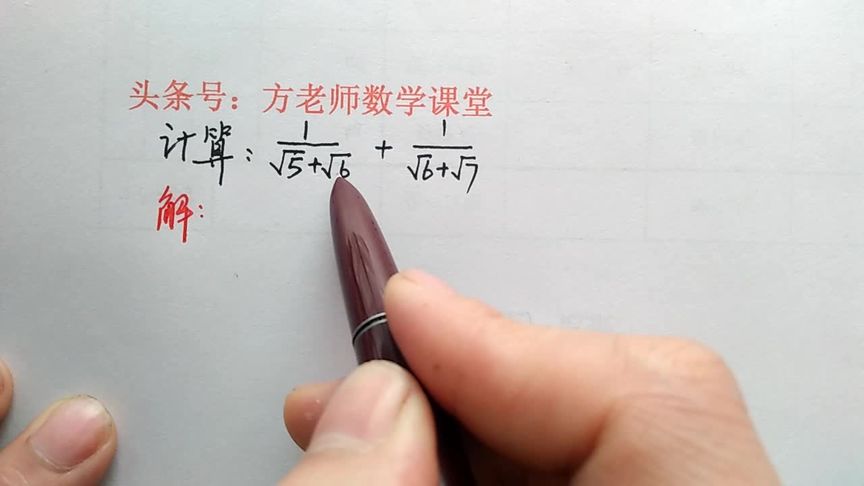 头条号：方老师数学课堂
计算：1/(√5+√6) + 1/(√6+√7)
解：